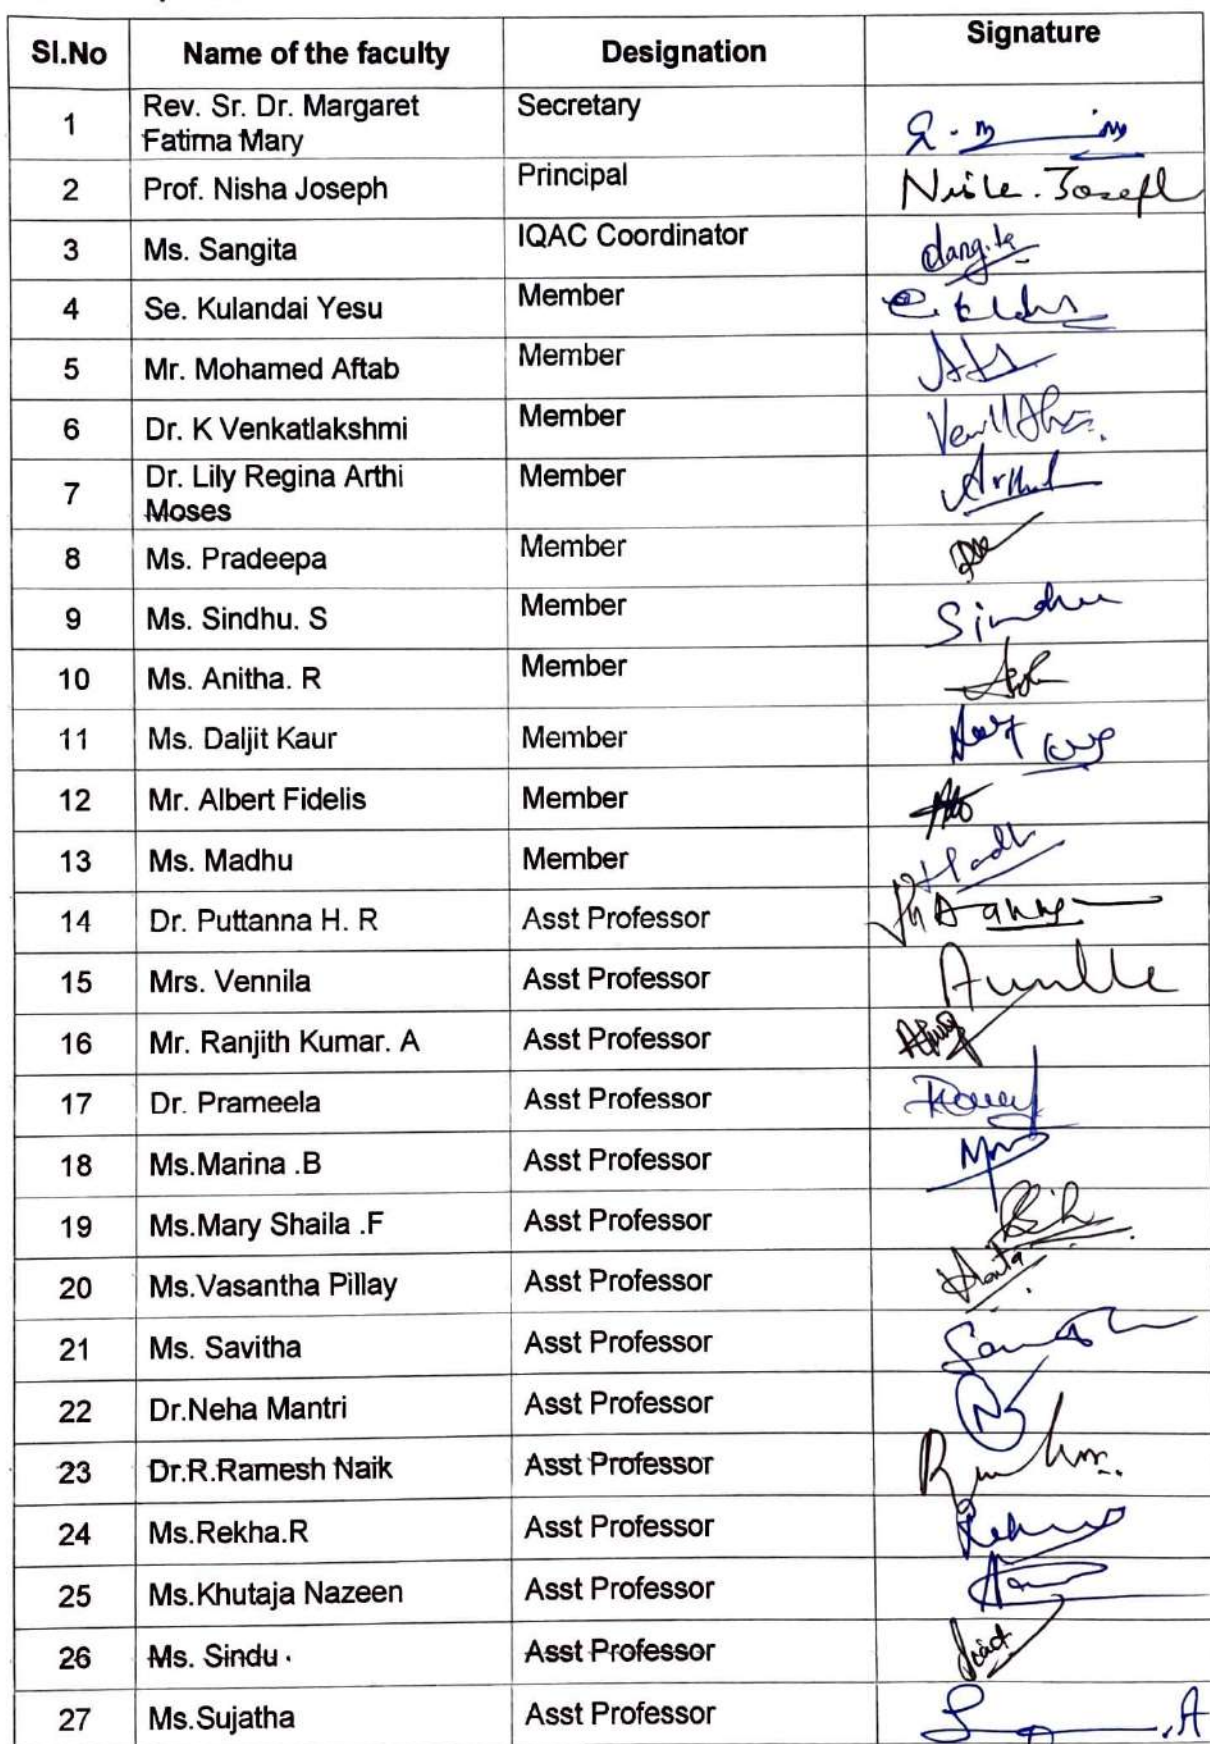 Sl.No Name of the faculty Designation Signature
1 Rev. Sr. Dr. Margaret Fatima Mary Secretary
2 Prof. Nisha Joseph Principal Nisha. Joseph
3 Ms. Sangita IQAC Coordinator Sangita
4 Se. Kulandai Yesu Member
5 Mr. Mohamed Aftab Member
6 Dr. K Venkatlakshmi Member
7 Dr. Lily Regina Arthi Moses Member
8 Ms. Pradeepa Member
9 Ms. Sindhu. S Member Sindhu
10 Ms. Anitha. R Member
11 Ms. Daljit Kaur Member
12 Mr. Albert Fidelis Member
13 Ms. Madhu Member
14 Dr. Puttanna H. R Asst Professor
15 Mrs. Vennila Asst Professor
16 Mr. Ranjith Kumar. A Asst Professor
17 Dr. Prameela Asst Professor
18 Ms.Marina .B Asst Professor
19 Ms.Mary Shaila .F Asst Professor
20 Ms.Vasantha Pillay Asst Professor
21 Ms. Savitha Asst Professor
22 Dr.Neha Mantri Asst Professor
23 Dr.R.Ramesh Naik Asst Professor
24 Ms.Rekha.R Asst Professor
25 Ms.Khutaja Nazeen Asst Professor
26 Ms. Sindu . Asst Professor
27 Ms.Sujatha Asst Professor